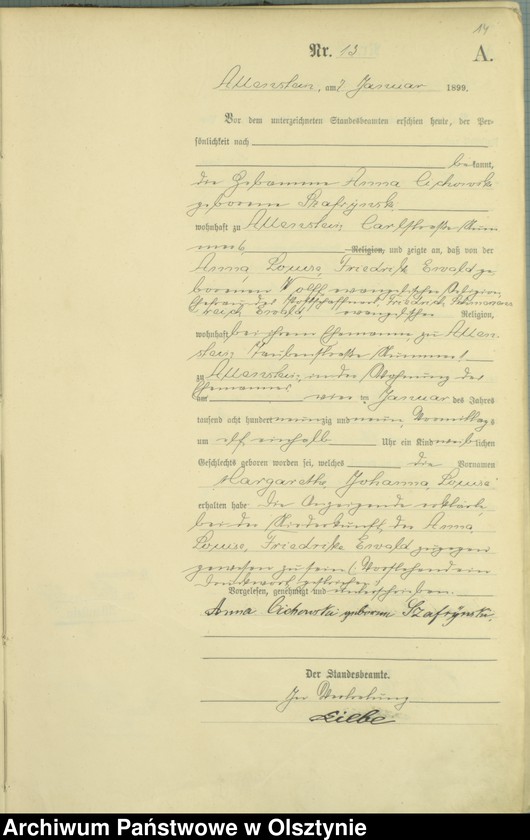 14
Nr. 13
A.
Allenstein, am 7 Januar 1899.
Vor dem unterzeichneten Standesbeamten erschien heute, der Per-
sönlichkeit nach
bekannt,
die Hebamme Anna Cichowski
geborene Szafrynski
wohnhaft zu Allenstein Carlstraße Num-
mer
Religion, und zeigte an, daß von der
Anna Louise Friedrike Ewald ge-
borenen Wolff evangelischer Religion
Ehefrau des Friedrich
Ewald, evangelischer Religion,
wohnhaft bei ihrem Ehemanne zu Allen-
stein Taubenstraße Nummer 1
zu Allenstein, in der Wohnung des
Ehemannes
am vier ten Januar des Jahres
tausend acht hundert neunzig und neun, Vormittags
um elf einhalb Uhr ein Kind weiblichen
Geschlechts geboren worden sei, welches die Vornamen
Margarethe Johanna Louise
erhalten habe. Die Anzeigende erklärte,
bei der Niederkunft der Anna
Louise, Friedrike Ewald zugegen
gewesen zu sein (Vorstehend ein
Druckwort gestrichen)
Vorgelesen, genehmigt und unterschrieben.
Anna Cichowski geborene Szafrynski.
Der Standesbeamte.
In Vertretung
Archiwum Państwowe w Olsztynie